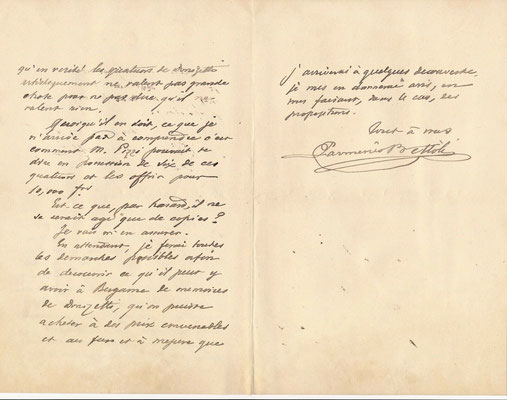 qu'en verité les quatuors de Donizetti
artistiquement ne valent pas grande
chose pour ne pas dire qu'il
valent rien.
Quoiqu'il en soit, ce que je
n'arrive pas à comprendre c'est
comment M. Pizzi pourrait se
dire en possession de six de ces
quatuors et les offrir pour
10,000 frs
Est ce que, par hasard, il ne
se serait agi que de copies?
Je vais m'en assurer.
En attendant, je ferai toutes
les demarches possibles afin
de decouvrir ce qu'il peut y
avoir à Bergame de memoires
de Donizetti, qu'on puisse
acheter à des prix convenables
et au fur et à mesure que
j'arriverai à quelques decouverte,
je vous en donnerai avis, en
vous faisant, dans le cas, des
propositions.
Tout à vous
Parmenio Bettoli